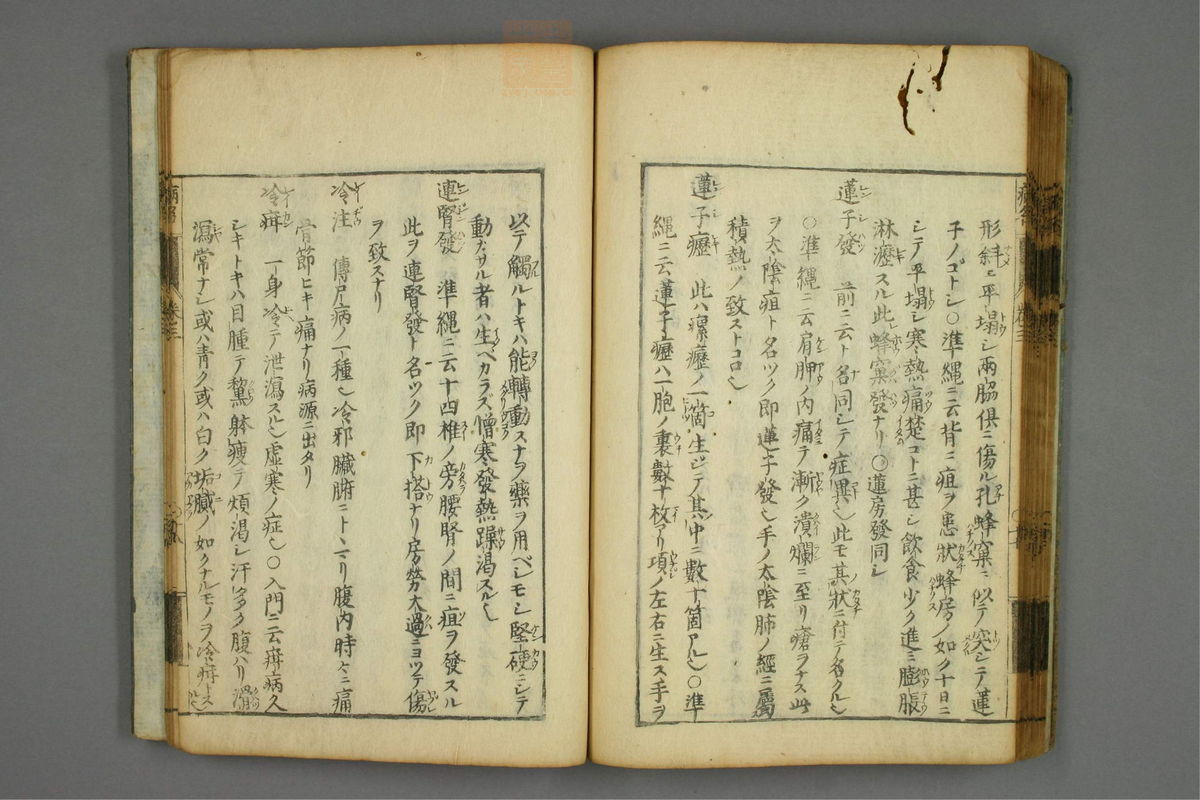 形斜ニ平塌シ兩脇倶ニ傷ル孔蜂窠ニ似テ突シテ蓮
子ノゴトシ○準縄ニ云背ニ疽ヲ患狀蜂房ノ如ク十日ニ
シテ平塌シ寒熱痛楚コトニ甚シ飲食少ク進ミ膨脹
淋瀝スル此蜂窠發ナリ○蓮房發同シ
蓮子發 前ニ云ト名同シテ症異也此モ其狀ニ付テ名クル也
○準縄ニ云肩胛ノ内痛テ漸ク潰爛ニ至リ瘡ヲナス此
ヲ太陰疽ト名ツク即蓮子發也手ノ太陰肺ノ經ニ屬
積熱ノ致ストコロ也
蓮子癧 此ハ瘰癧ノ一箇生シテ其中ニ數十箇アル也○準
縄ニ云蓮子癧ハ一胞ノ裏數十枚アリ項ノ左右ニ生ス手ヲ
以テ觸ルトキハ能轉動スナヲ藥ヲ用ベシモシ堅硬ニシテ
動カサル者ハ生ベカラズ憎寒發熱躁渇スル也
連腎發 準縄ニ云十四椎ノ旁腰腎ノ間ニ疽ヲ發スル
此ヲ連腎發ト名ツク即下搭ナリ房勞太過ニヨツテ傷
ヲ致スナリ
冷注 傳尸病ノ一種也冷邪臟腑ニトヾマリ腹内時々ニ痛
骨節ヒキ痛ナリ病源ニ出タリ
冷疳 一身冷テ泄瀉スル也虚寒ノ症也○入門ニ云疳病久
シキトキハ目腫テ黧躰瘦テ煩渇シ汗多ク腹ハリ滑
瀉常ナシ或ハ青ク或ハ白ク垢膩ノ如クナルモノヲ冷疳トス